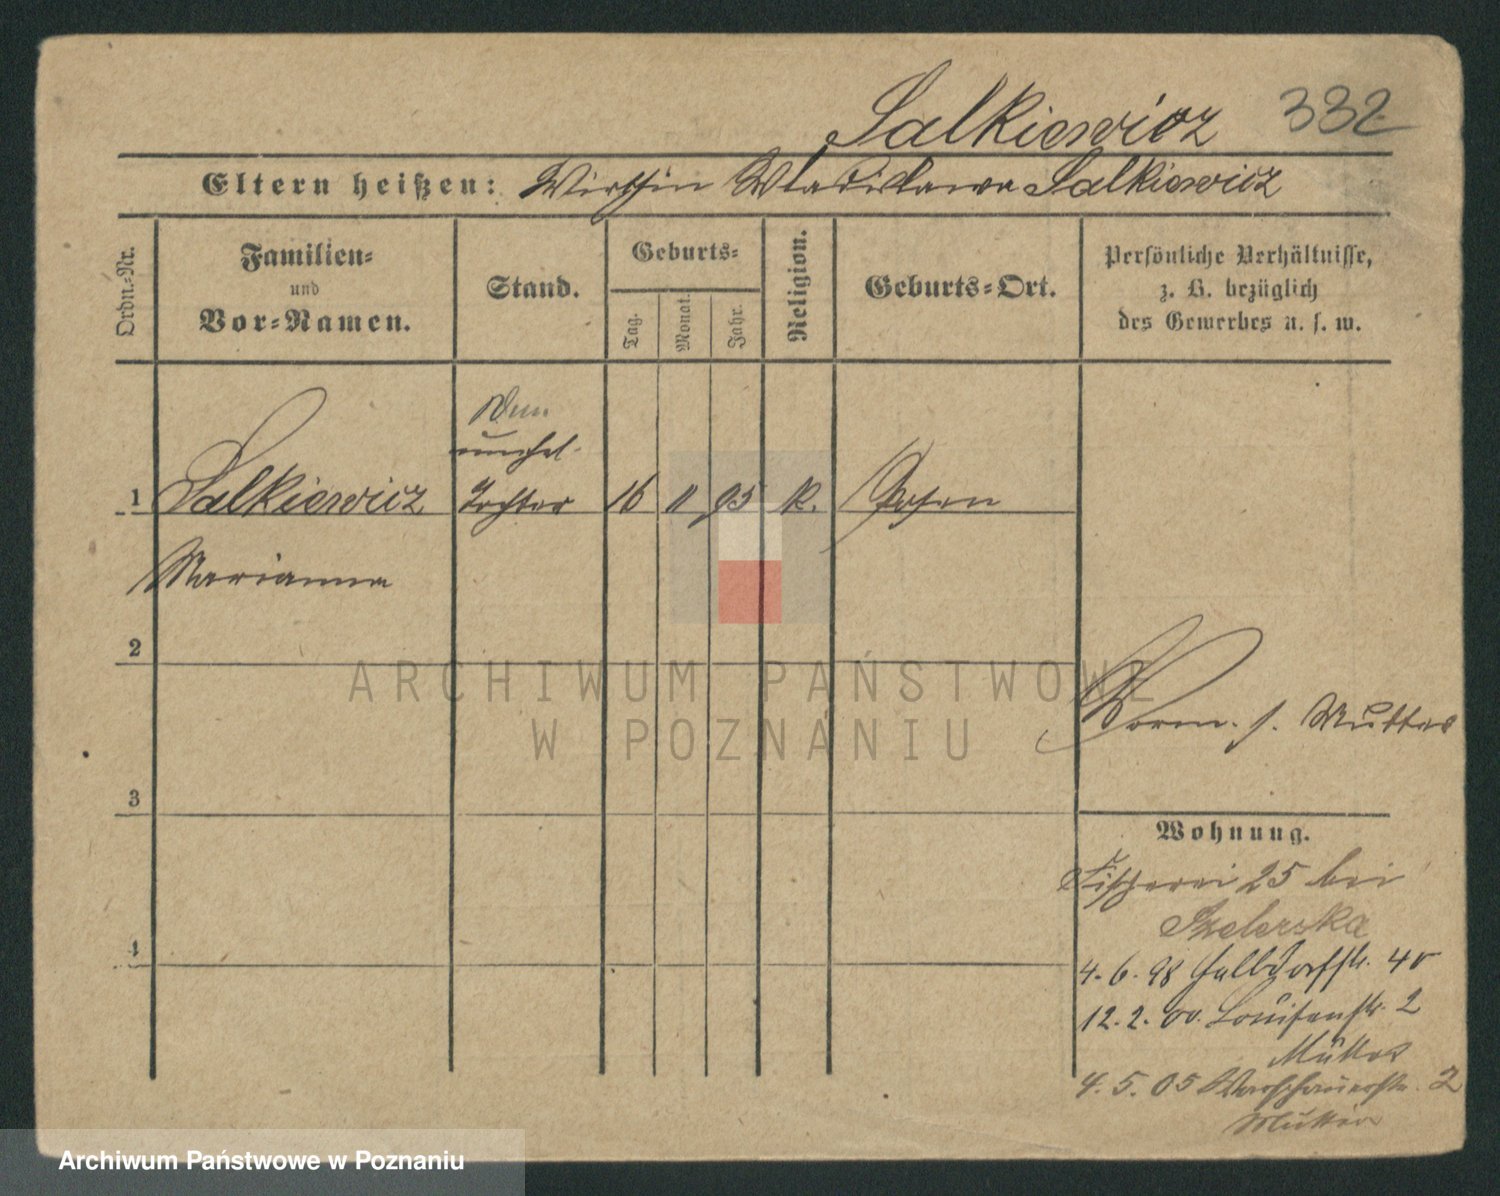 Salkiewicz 332
Eltern heißen: Wirthin Wladislawa Salkiewicz
Ordn.-Nr.
Familien-
und
Vor-Namen.
Stand.
Geburts-
Tag.
Monat.
Jahr.
Religion.
Geburts-Ort.
Persönliche Verhältnisse,
z. B. bezüglich
des Gewerbes u. s. w.
unehel.
1 Salkiewicz Tochter 16 11 95 k. Posen
Marianna
2
ARCHIWUM PAŃSTWOWE
W POZNANIU
Vorm. s. Mutter
3
Wohnung.
Fischerei 25 bei
Szelerska
4
4.6.98 Halbdorfstr. 40
12.2.00. Louisenstr. 2
Mutter
4.5.05 Warschauerstr. 2
Mutter
Archiwum Państwowe w Poznaniu